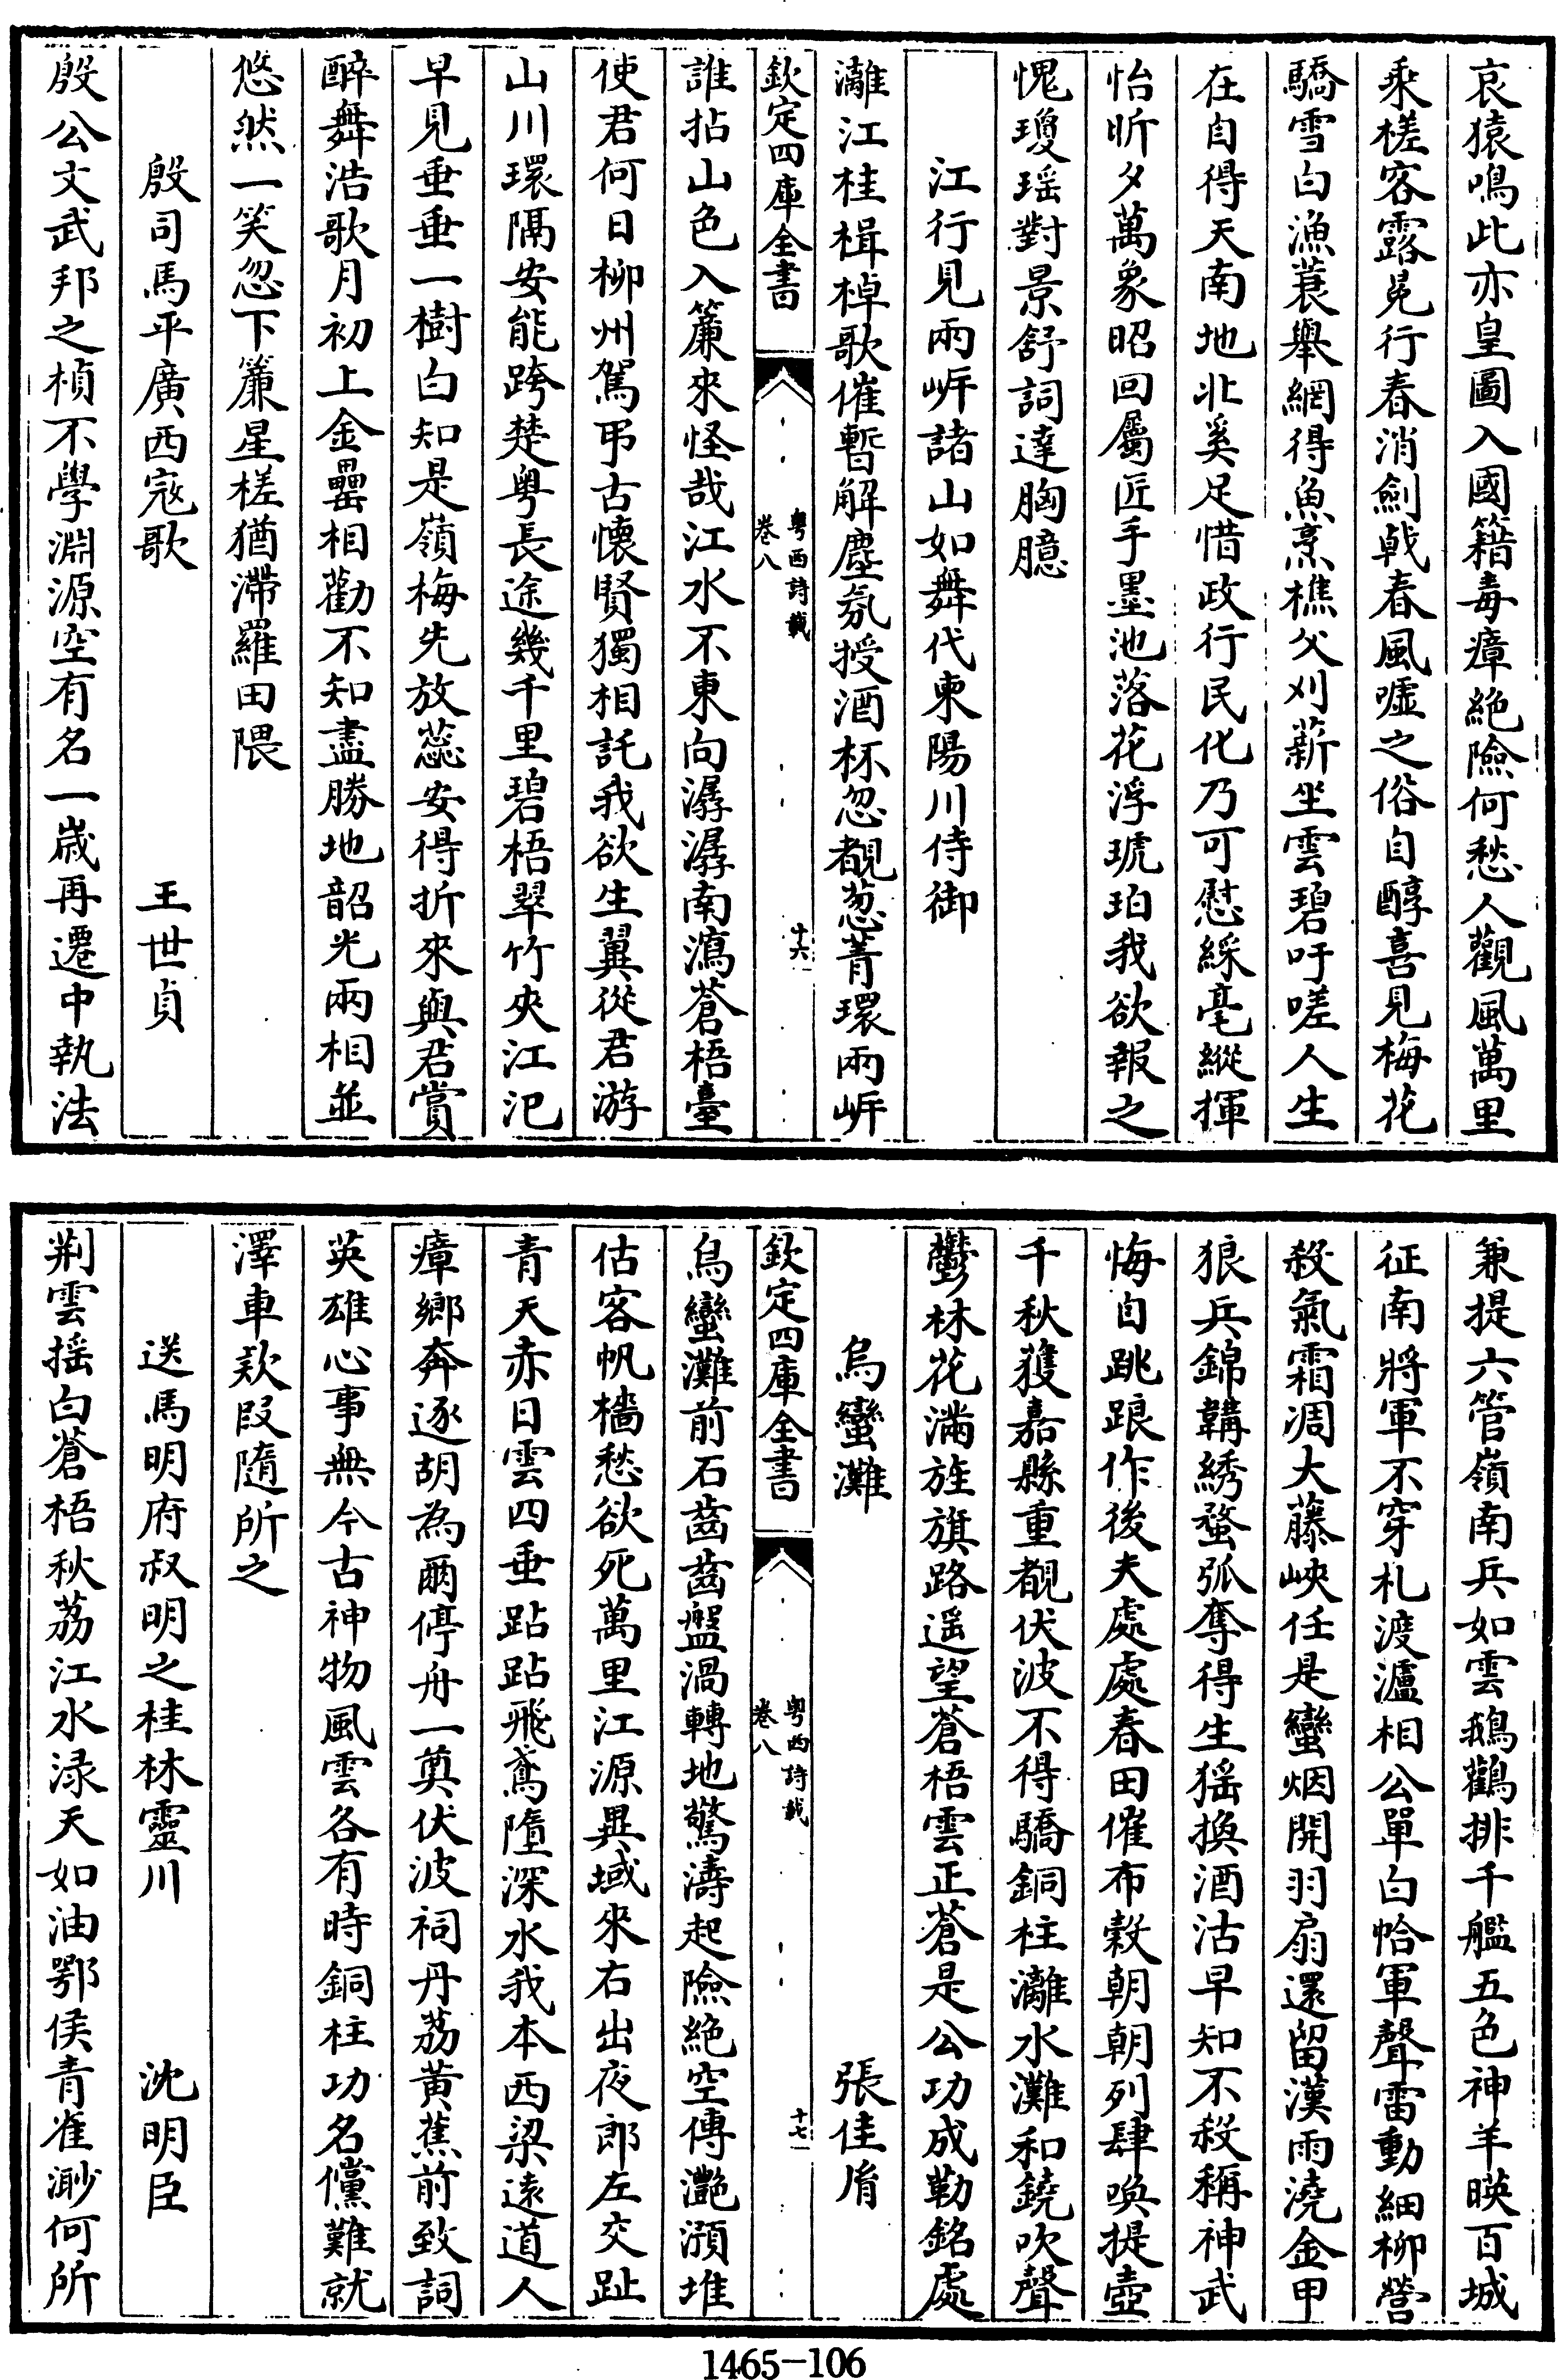 哀猿鳴此亦皇圖入國籍毒瘴絶險何愁人觀風萬里
乘槎客露冕行春消劍戟春風噓之俗自醇喜見梅花
驕雪白漁蓑舉網得魚烹樵父刈薪坐雲碧吁嗟人生
在自得天南地北奚足惜政行民化乃可慰綵毫縱揮
怡昕夕萬象昭回屬匠手墨池落花浮琥珀我欲報之
愧瓊瑤對景舒詞達胸臆
江行見兩岸諸山如舞代柬陽川侍御
灕江桂楫棹歌催暫解塵氛授酒杯忽覩葱菁環兩岸
欽定四庫全書
粤西詩載
卷八
十六
誰拈山色入簾來怪哉江水不東向潺潺南瀉蒼梧臺
使君何日柳州駕弔古懷賢獨相託我欲生翼從君游
山川環隔安能跨楚粤長途幾千里碧梧翠竹夾江汜
早見垂垂一樹白知是嶺梅先放蕊安得折來與君賞
醉舞浩歌月初上金罍相勸不知盡勝地韶光兩相並
悠然一笑忽下簾星槎猶滯羅田隈
殷司馬平廣西宼歌 王世貞
殷公文武邦之楨不學淵源空有名一嵗再遷中執法
兼提六管嶺南兵如雲鵝鸛排千艦五色神羊暎百城
征南將軍不穿札渡瀘相公單白恰軍聲雷動細柳營
殺氣霜凋大藤峽任是蠻烟開羽扇還留漢雨澆金甲
狼兵錦韝綉蝥弧奪得生猺換酒沽早知不殺稱神武
悔自跳踉作後夫處處春田催布穀朝朝列肆喚提壺
千秋獲嘉縣重覩伏波不得驕銅柱灕水灘和鐃吹聲
鬱林花滿旌旗路遥望蒼梧雲正蒼是公功成勒銘處
烏蠻灘 張佳胤
欽定四庫全書
粤西詩載
卷八
十七
烏蠻灘前石齒齒盤渦轉地驚濤起險絶空傳灔澦堆
估客帆檣愁欲死萬里江源異域來右出夜郎左交趾
青天赤日雲四垂跕跕飛鳶墮深水我本西梁遠道人
瘴鄉奔逐胡為爾停舟一奠伏波祠丹荔黄蕉前致詞
英雄心事無今古神物風雲各有時銅柱功名儻難就
澤車欵段隨所之
送馬明府叔明之桂林靈川 沈明臣
荆雲揺白蒼梧秋荔江水渌天如油鄂侯青雀渺何所
1465-106